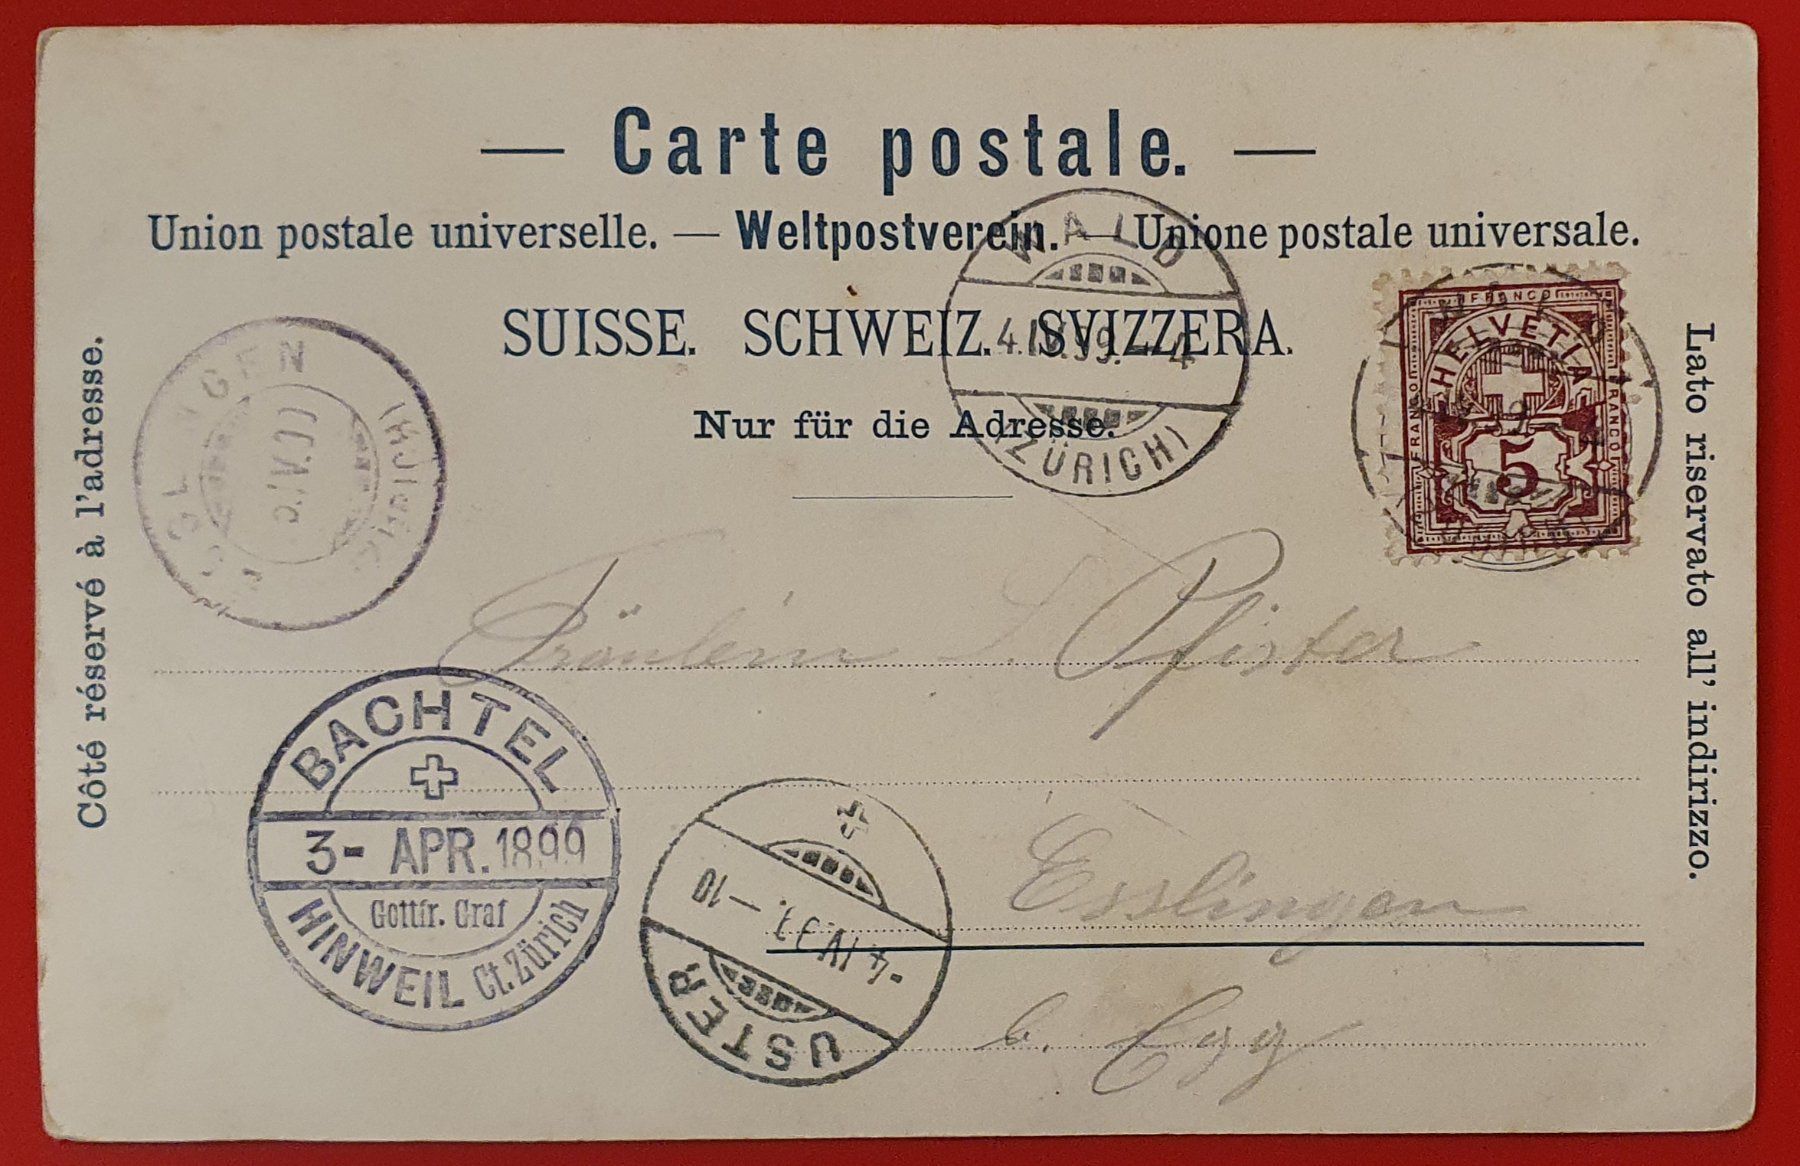 — Carte postale. —
Union postale universelle. — Weltpostverein. — Unione postale universale.
SUISSE. SCHWEIZ. SVIZZERA.
Nur für die Adresse.
Côté réservé à l'adresse.
Lato riservato all' indirizzo.
WALD
4.IV.99.-4
(ZÜRICH)
FRANCO
HELVETIA
FRANCO
FRANCO
5
Fräulein S. Pfister
Esslingen
b. Egg
BACHTEL
3- APR. 1899
Gottfr. Graf
HINWEIL Ct. Zürich
-4.IV.99.-10
USTER